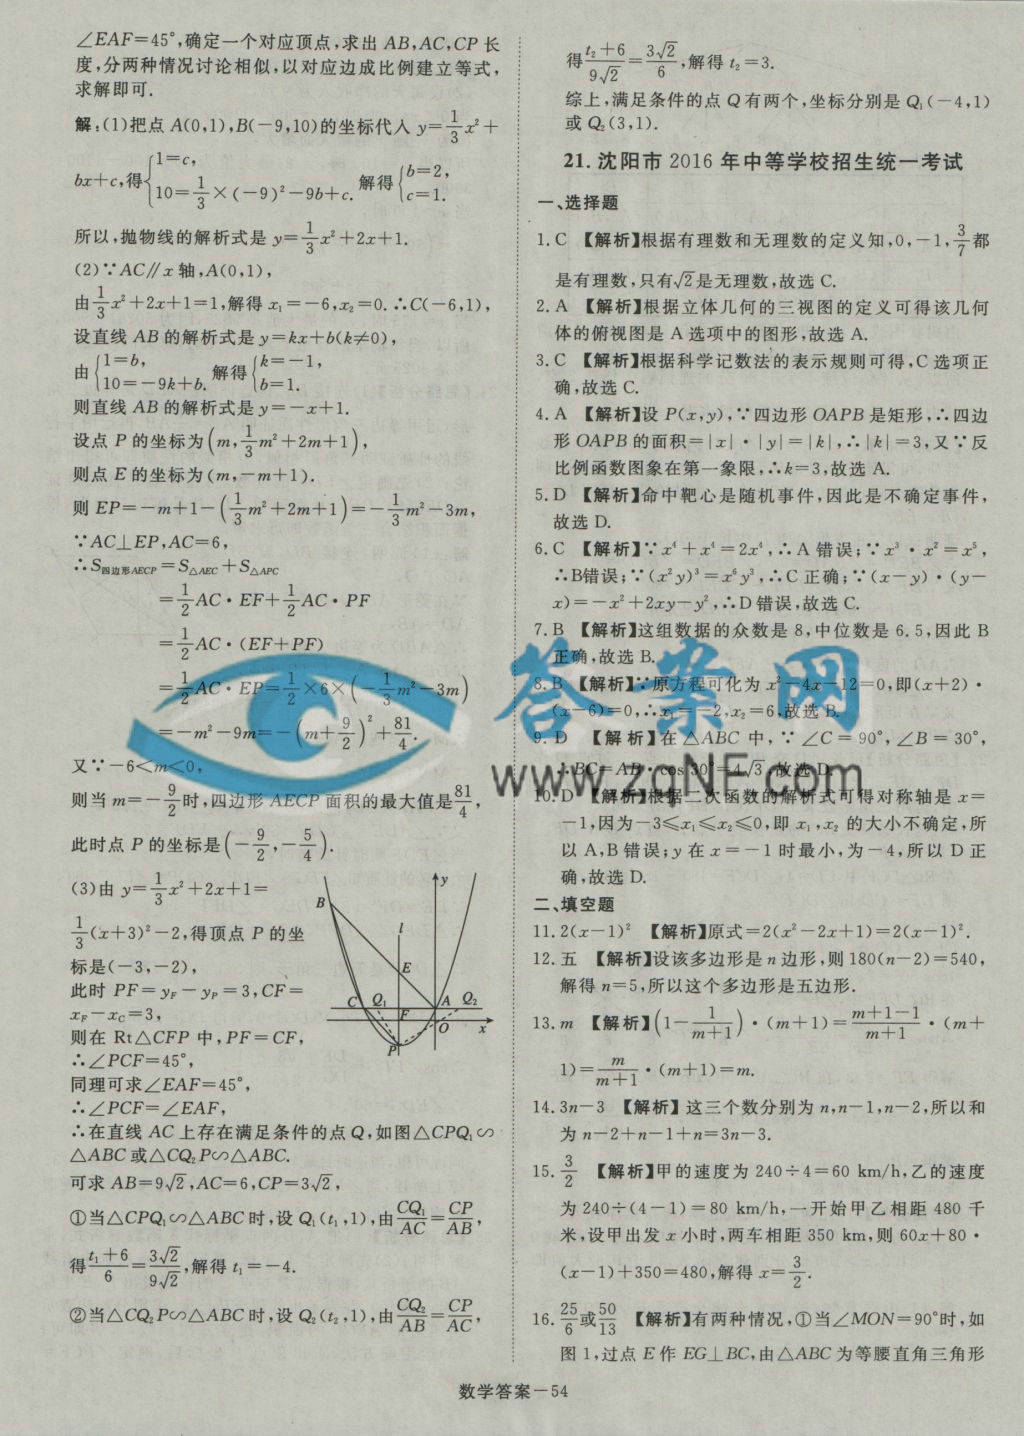 ∠EAF=45°,确定一个对应顶点,求出 AB,AC,CP 长
度,分两种情况讨论相似,以对应边成比例建立等式,
求解即可.
解:(1)把点 A(0,1),B(-9,10)的坐标代入 y=1/3x²+
bx+c,得{1=c, 10=1/3×(-9)²-9b+c. 解得{b=2, c=1.
所以,抛物线的解析式是 y=1/3x²+2x+1.
(2)∵AC∥x 轴,A(0,1),
由1/3x²+2x+1=1,解得 x₁=-6,x₂=0.∴C(-6,1),
设直线 AB 的解析式是 y=kx+b(k≠0),
由{1=b, 10=-9k+b. 解得{k=-1, b=1.
则直线 AB 的解析式是 y=-x+1.
设点 P 的坐标为(m,1/3m²+2m+1),
则点 E 的坐标为(m,-m+1).
则 EP=-m+1-(1/3m²+2m+1)=-1/3m²-3m,
∵AC⊥EP,AC=6,
∴S四边形AECP=S△AEC+S△APC
=1/2AC·EF+1/2AC·PF
=1/2AC·(EF+PF)
=1/2AC·EP=1/2×6×(-1/3m²-3m)
=-m²-9m=-(m+9/2)²+81/4.
又∵-6<m<0,
则当 m=-9/2时,四边形 AECP 面积的最大值是81/4,
此时点 P 的坐标是(-9/2,-5/4).
(3)由 y=1/3x²+2x+1=
1/3(x+3)²-2,得顶点 P 的坐
标是(-3,-2),
此时 PF=yF-yP=3,CF=
xF-xC=3,
则在 Rt△CFP 中,PF=CF,
∴∠PCF=45°,
同理可求∠EAF=45°,
∴∠PCF=∠EAF,
y
B
l
E
C
Q₁
A
Q₂
F
O
x
P
∴在直线 AC 上存在满足条件的点 Q,如图△CPQ₁∽
△ABC 或△CQ₂P∽△ABC.
可求 AB=9√2,AC=6,CP=3√2,
①当△CPQ₁∽△ABC 时,设 Q₁(t₁,1),由CQ₁/AC=CP/AB,
得(t₁+6)/6=3√2/9√2,解得 t₁=-4.
②当△CQ₂P∽△ABC 时,设 Q₂(t₂,1),由CQ₂/AB=CP/AC,
得(t₂+6)/9√2=3√2/6,解得 t₂=3.
综上,满足条件的点 Q 有两个,坐标分别是 Q₁(-4,1)
或 Q₂(3,1).
21.沈阳市 2016 年中等学校招生统一考试
一、选择题
1.C 【解析】根据有理数和无理数的定义知,0,-1,3/7都
是有理数,只有√2是无理数,故选 C.
2.A 【解析】根据立体几何的三视图的定义可得该几何
体的俯视图是 A 选项中的图形,故选 A.
3.C 【解析】根据科学记数法的表示规则可得,C 选项正
确,故选 C.
4.A 【解析】设 P(x,y),∵四边形 OAPB 是矩形,∴四边
形 OAPB 的面积=|x|·|y|=|k|,∴|k|=3,又∵反
比例函数图象在第一象限,∴k=3,故选 A.
5.D 【解析】命中靶心是随机事件,因此是不确定事件,
故选 D.
6.C 【解析】∵x⁴+x⁴=2x⁴,∴A 错误;∵x³·x²=x⁵,
∴B错误;∵(x²y)³=x⁶y³,∴C 正确;∵(x-y)·(y-
x)=-x²+2xy-y²,∴D错误,故选 C.
7.B 【解析】这组数据的众数是 8,中位数是 6.5,因此 B
正确,故选 B.
8.B 【解析】∵原方程可化为 x²-4x-12=0,即(x+2)·
(x-6)=0,∴x₁=-2,x₂=6,故选 B.
9.D 【解析】在△ABC 中,∵∠C=90°,∠B=30°,
∴BC=AB·cos30°=4√3,故选 D.
10.D 【解析】根据二次函数的解析式可得对称轴是 x=
-1,因为-3≤x₁≤x₂≤0,即 x₁,x₂ 的大小不确定,所
以 A,B 错误;y 在 x=-1 时最小,为-4,所以 D 正
确,故选 D.
二、填空题
11.2(x-1)² 【解析】原式=2(x²-2x+1)=2(x-1)².
12.五 【解析】设该多边形是 n 边形,则 180(n-2)=540,
解得 n=5,所以这个多边形是五边形.
13.m 【解析】(1-1/(m+1))·(m+1)=(m+1-1)/(m+1)·(m+
1)=m/(m+1)·(m+1)=m.
14.3n-3 【解析】这三个数分别为 n,n-1,n-2,所以和
为 n-2+n-1+n=3n-3.
15.3/2 【解析】甲的速度为 240÷4=60 km/h,乙的速度
为 240÷(4-1)=80 km/h,一开始甲乙相距 480 千
米,设甲出发 x 小时,两车相距 350 km,则 60x+80·
(x-1)+350=480,解得 x=3/2.
16.25/6或50/13 【解析】有两种情况,①当∠MON=90°时,如
图 1,过点 E 作 EG⊥BC,由△ABC 为等腰直角三角形
数学答案—54
答案网
www.zqNF.com